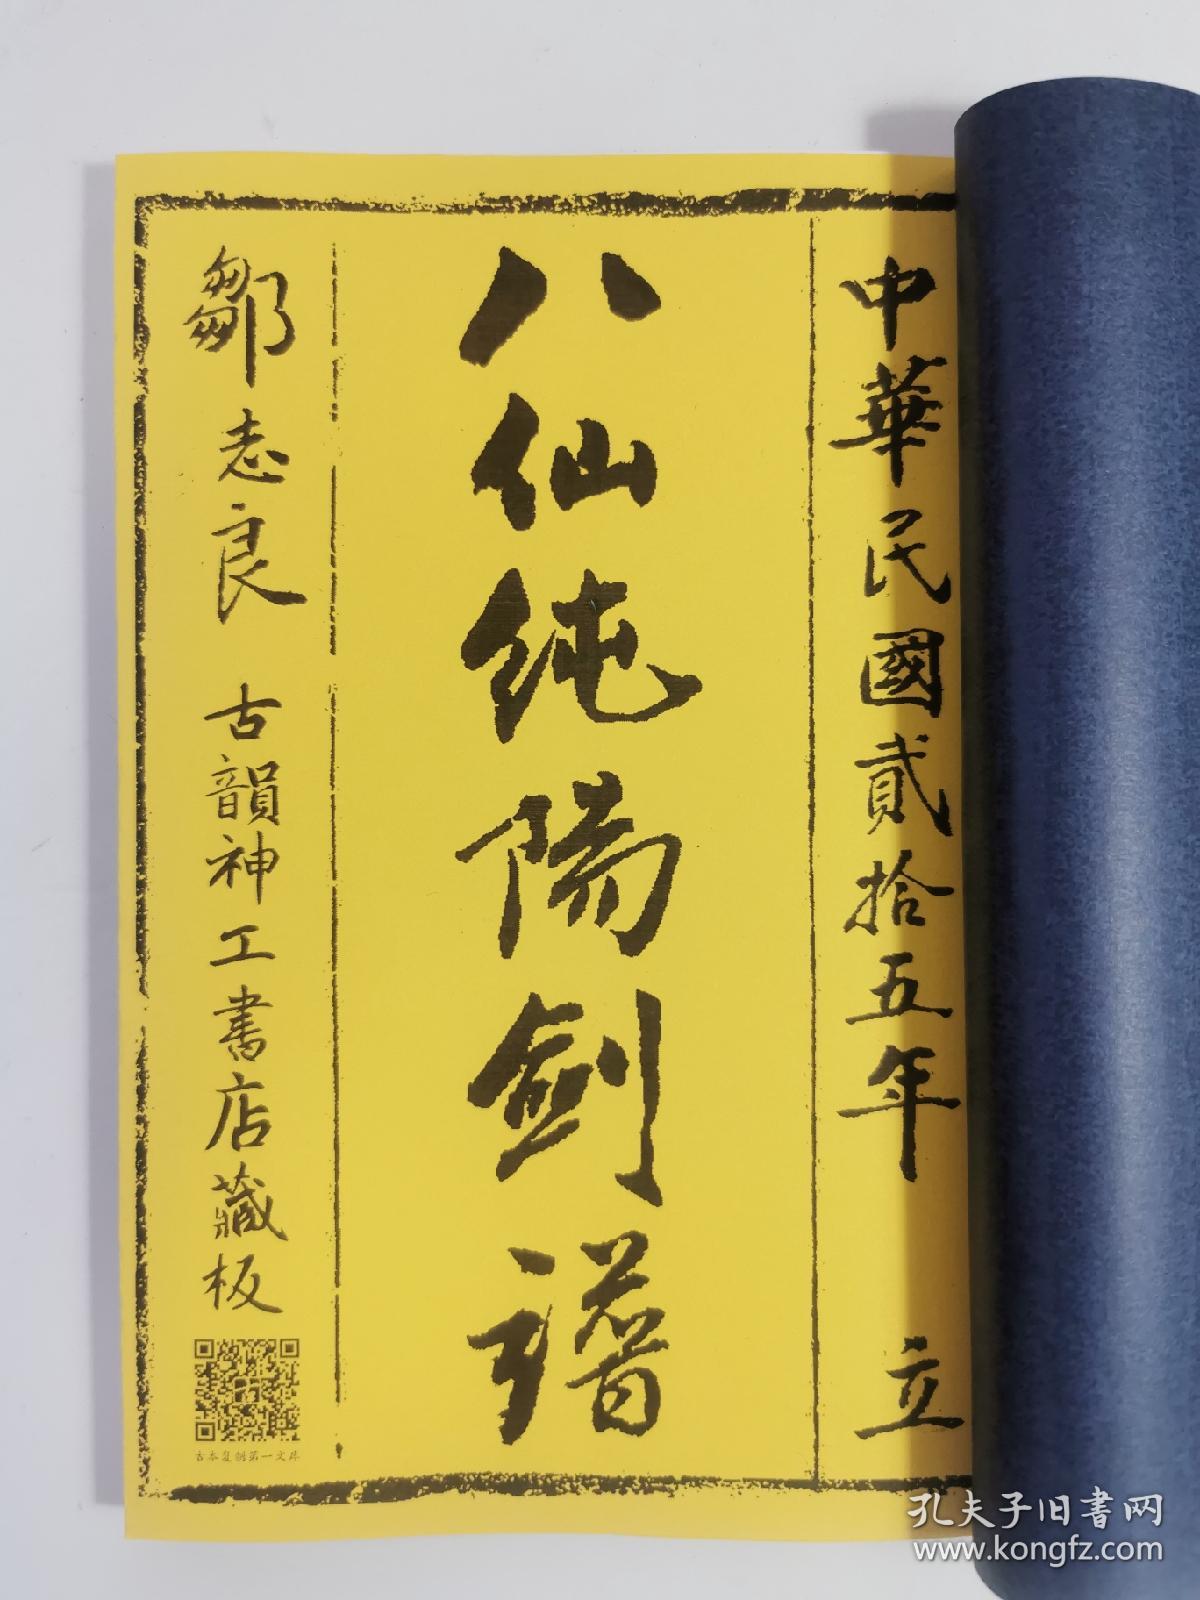 中華民國貳拾五年 立
八仙純陽劍譜
鄒志良 古韻神工書店藏板
古本复制第一文库
孔夫子旧書网
www.kongfz.com